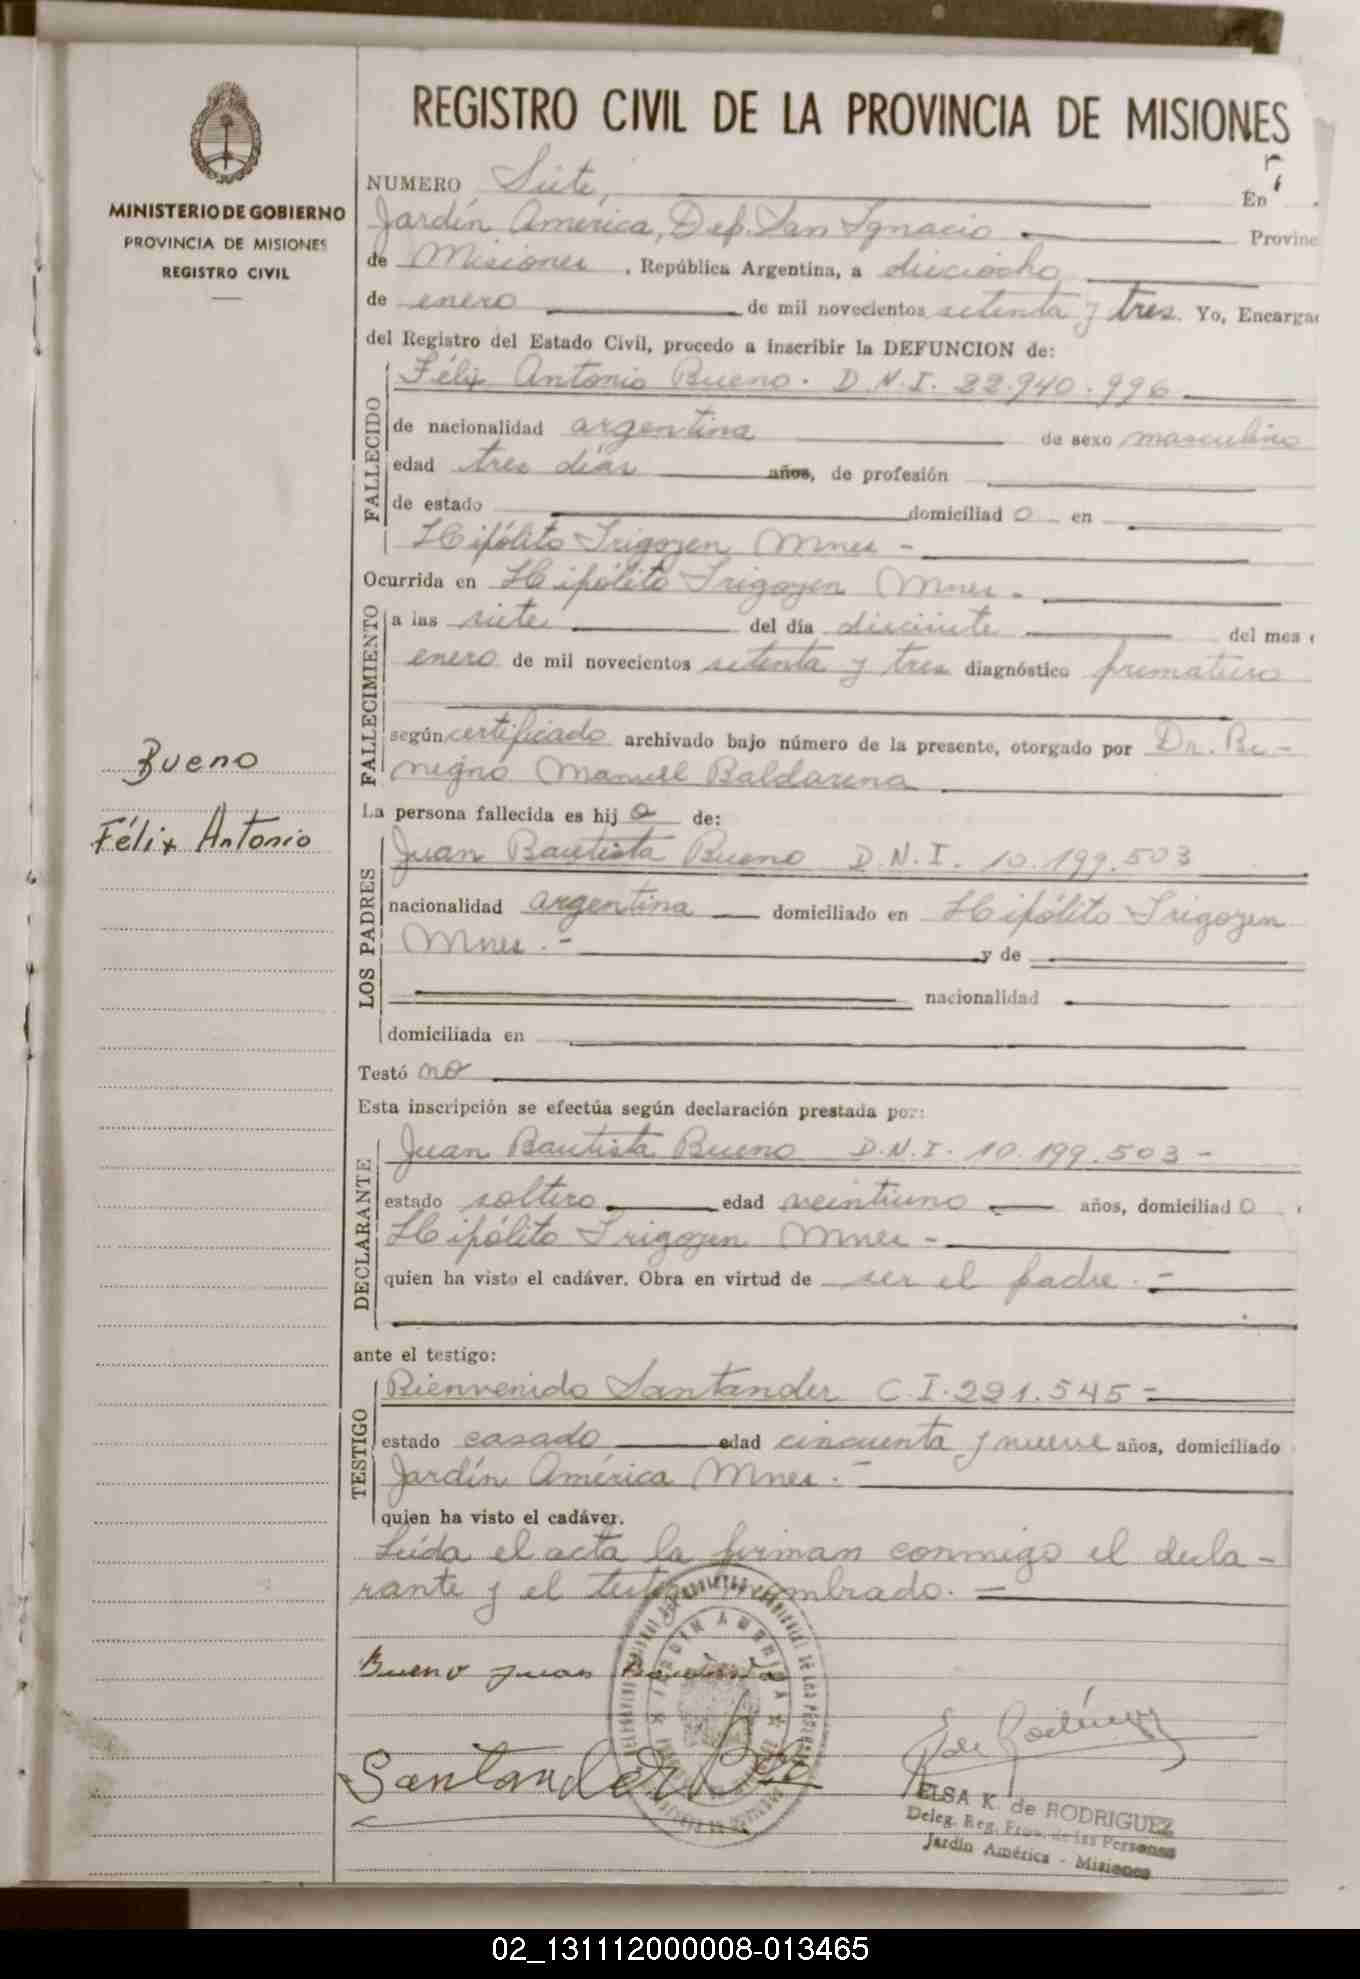 REGISTRO CIVIL DE LA PROVINCIA DE MISIONES
MINISTERIO DE GOBIERNO
PROVINCIA DE MISIONES
REGISTRO CIVIL
Bueno
Félix Antonio
NUMERO Siete, En
Jardín América, Dep. San Ignacio Provinc
de Misiones, República Argentina, a dieciocho
de enero de mil novecientos setenta y tres. Yo, Encarga
del Registro del Estado Civil, procedo a inscribir la DEFUNCION de:
FALLECIDO
Félix Antonio Bueno. D.N.I. 22.940.996
de nacionalidad argentina de sexo masculino
edad tres días años, de profesión
de estado domiciliad o en
Hipólito Irigoyen Mnes -
Ocurrida en Hipólito Irigoyen Mnes -
FALLECIMIENTO
a las siete del día diecisiete del mes
enero de mil novecientos setenta y tres diagnóstico prematuro
según certificado archivado bajo número de la presente, otorgado por Dr. Be-
nigno Manuel
La persona fallecida es hij o de:
LOS PADRES
Juan Bautista Bueno D.N.I. 10.199.503
nacionalidad argentina domiciliado en Hipólito Irigoyen
Mnes.- y de
nacionalidad
domiciliada en
Testó no
Esta inscripción se efectúa según declaración prestada por:
DECLARANTE
Juan Bautista Bueno D.N.I. 10.199.503 -
estado soltero edad veintiuno años, domiciliad o
Hipólito Irigoyen Mnes -
quien ha visto el cadáver. Obra en virtud de ser el padre.-
ante el testigo:
TESTIGO
Bienvenido Santander C.I. 291.545-
estado casado edad cincuenta y nueve años, domiciliado
Jardín América Mnes.-
quien ha visto el cadáver.
Leída el acta la firman conmigo el decla-
rante y el testigo nombrado.-
Bueno Juan Bautista
JARDIN AMERICA
Santander
ELSA K. de RODRIGUEZ
Deleg. Reg. Prov. de las Personas
Jardín América - Misiones
02_131112000008-013465